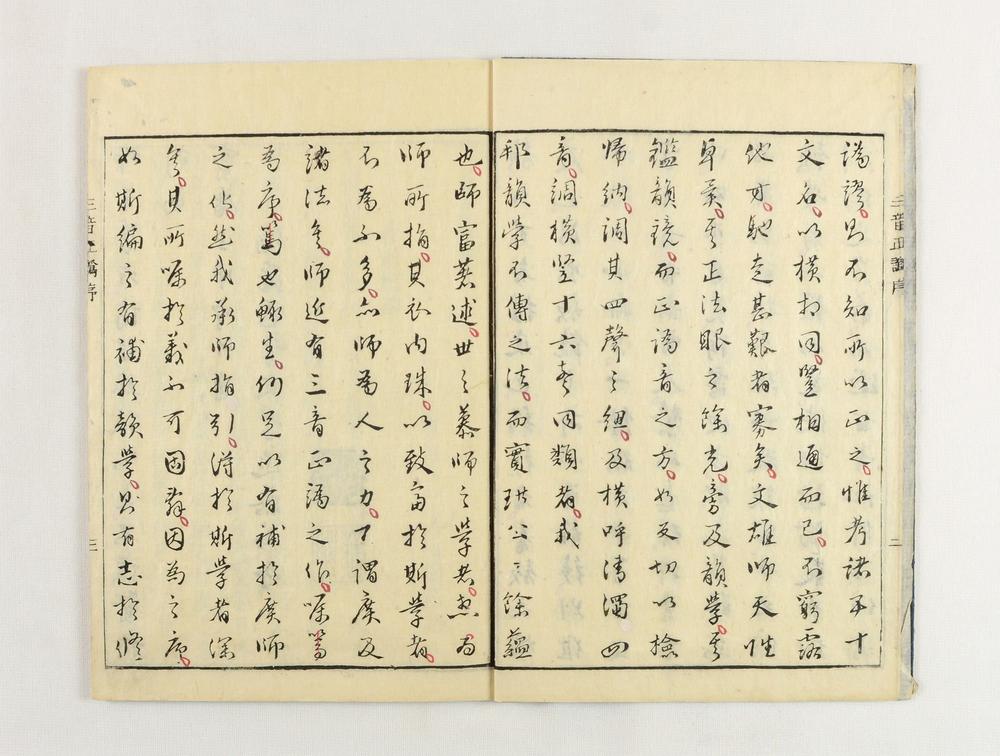 三音正譌序 二
譌謬。則不知所以正之。惟考諸五十
文名。以横相同。竪相通而已。不窮
他 馳走甚艱者寡矣。文雄師天性
卓異。其正法眼之餘光。旁及韻學。其
鑑韻鏡。而正譌音之方。如反切以撿
帰納。調其四聲之紐。及横呼清濁四
音。調横竪十六 同類者。我
邦韻学不傳之法。而實珙公之餘蘊
也。師富著述。世之慕師之學者。悉為
師所指。其衣内珠。以致富於斯學者。
不為不多。亦師為人之力。可謂廣及
諸法矣。師近有三音正譌之作。嘱篤
為序。篤也鯫生。何足以有補於廣師
之化。然我承師指引。得於斯學者深
矣。其所嘱於義不可固辞。因為之序。
如斯編之有補於韻學。則有志於修
三音正譌序 三